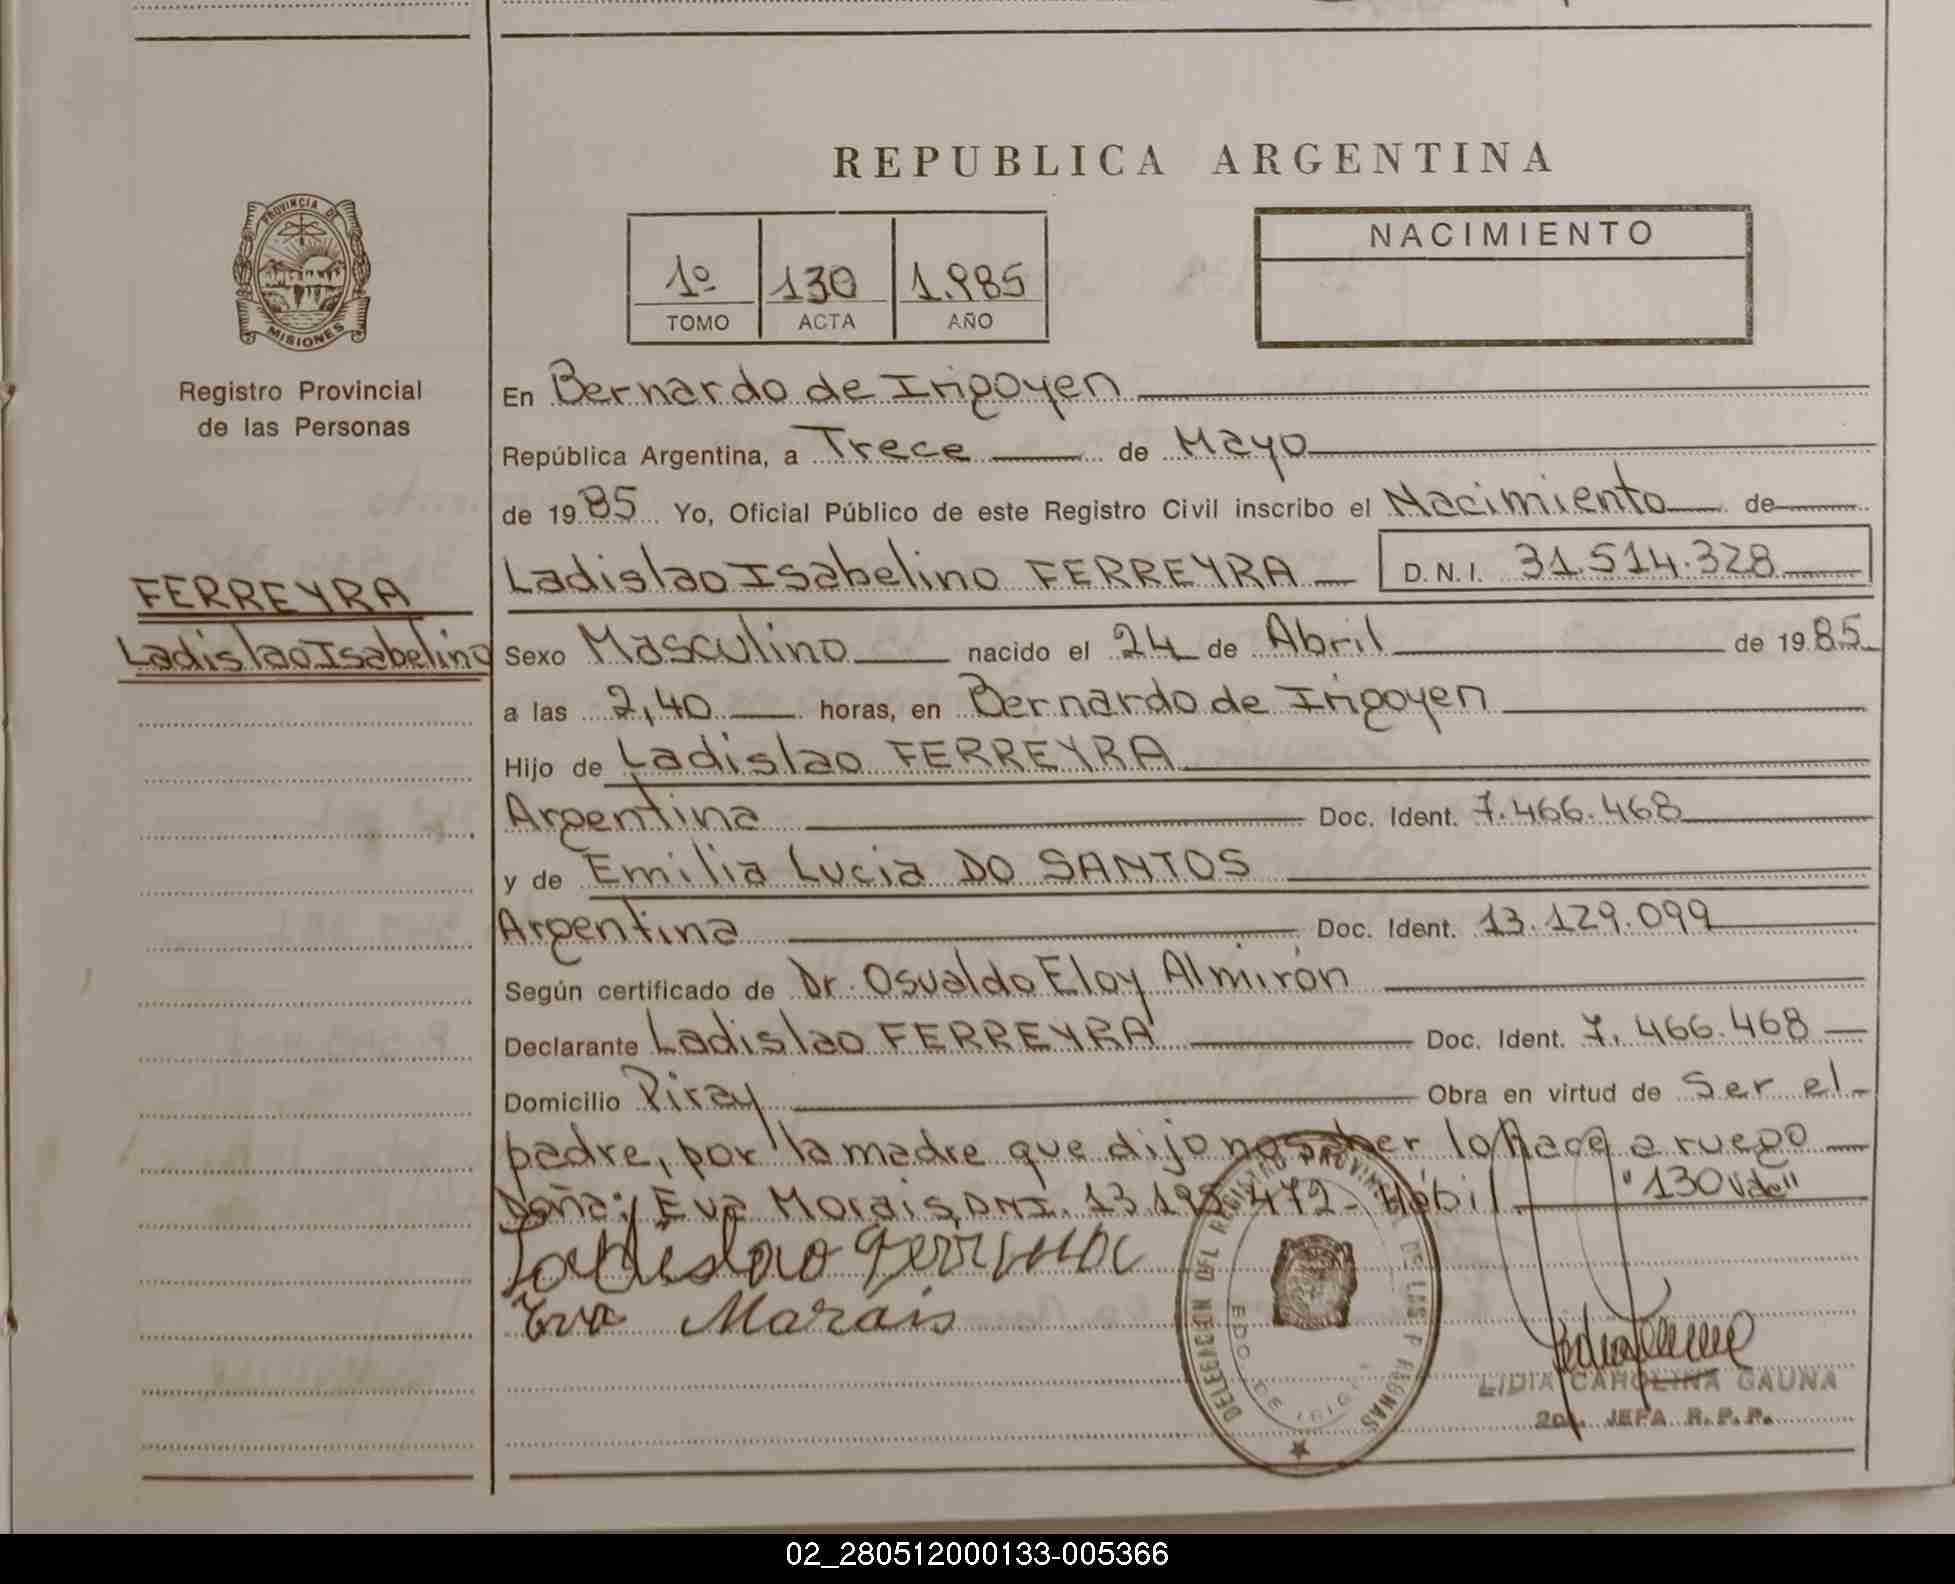 REPUBLICA ARGENTINA
PROVINCIA DE
MISIONES
Registro Provincial
de las Personas
FERREYRA
Ladislao Isabelino
1º 130 1.985
TOMO ACTA AÑO
NACIMIENTO
En Bernardo de Irigoyen
República Argentina, a Trece de Mayo
de 1985 Yo, Oficial Público de este Registro Civil inscribo el Nacimiento de
Ladislao Isabelino FERREYRA D.N.I. 31.514.328
Sexo Masculino nacido el 24 de Abril de 1985
a las 2,40 horas, en Bernardo de Irigoyen
Hijo de Ladislao FERREYRA
Argentina Doc. Ident. 7.466.468
y de Emilia Lucia DO SANTOS
Argentina Doc. Ident. 13.129.099
Según certificado de Dr. Osvaldo Eloy Almirón
Declarante Ladislao FERREYRA Doc. Ident. 7.466.468
Domicilio Piray Obra en virtud de Ser el
padre, por la madre que dijo no saber lo hace a ruego
Doña: Eva Morais DNI. 13.195.472- Hábil "130 Vale"
Ladislao
Eva Morais
DELEGACION DEL REGISTRO PROVINCIAL DE LAS PERSONAS
BDO. DE IRIGOYEN
LIDIA CAROLINA GAUNA
2da. JEFA R.P.P.
02_280512000133-005366